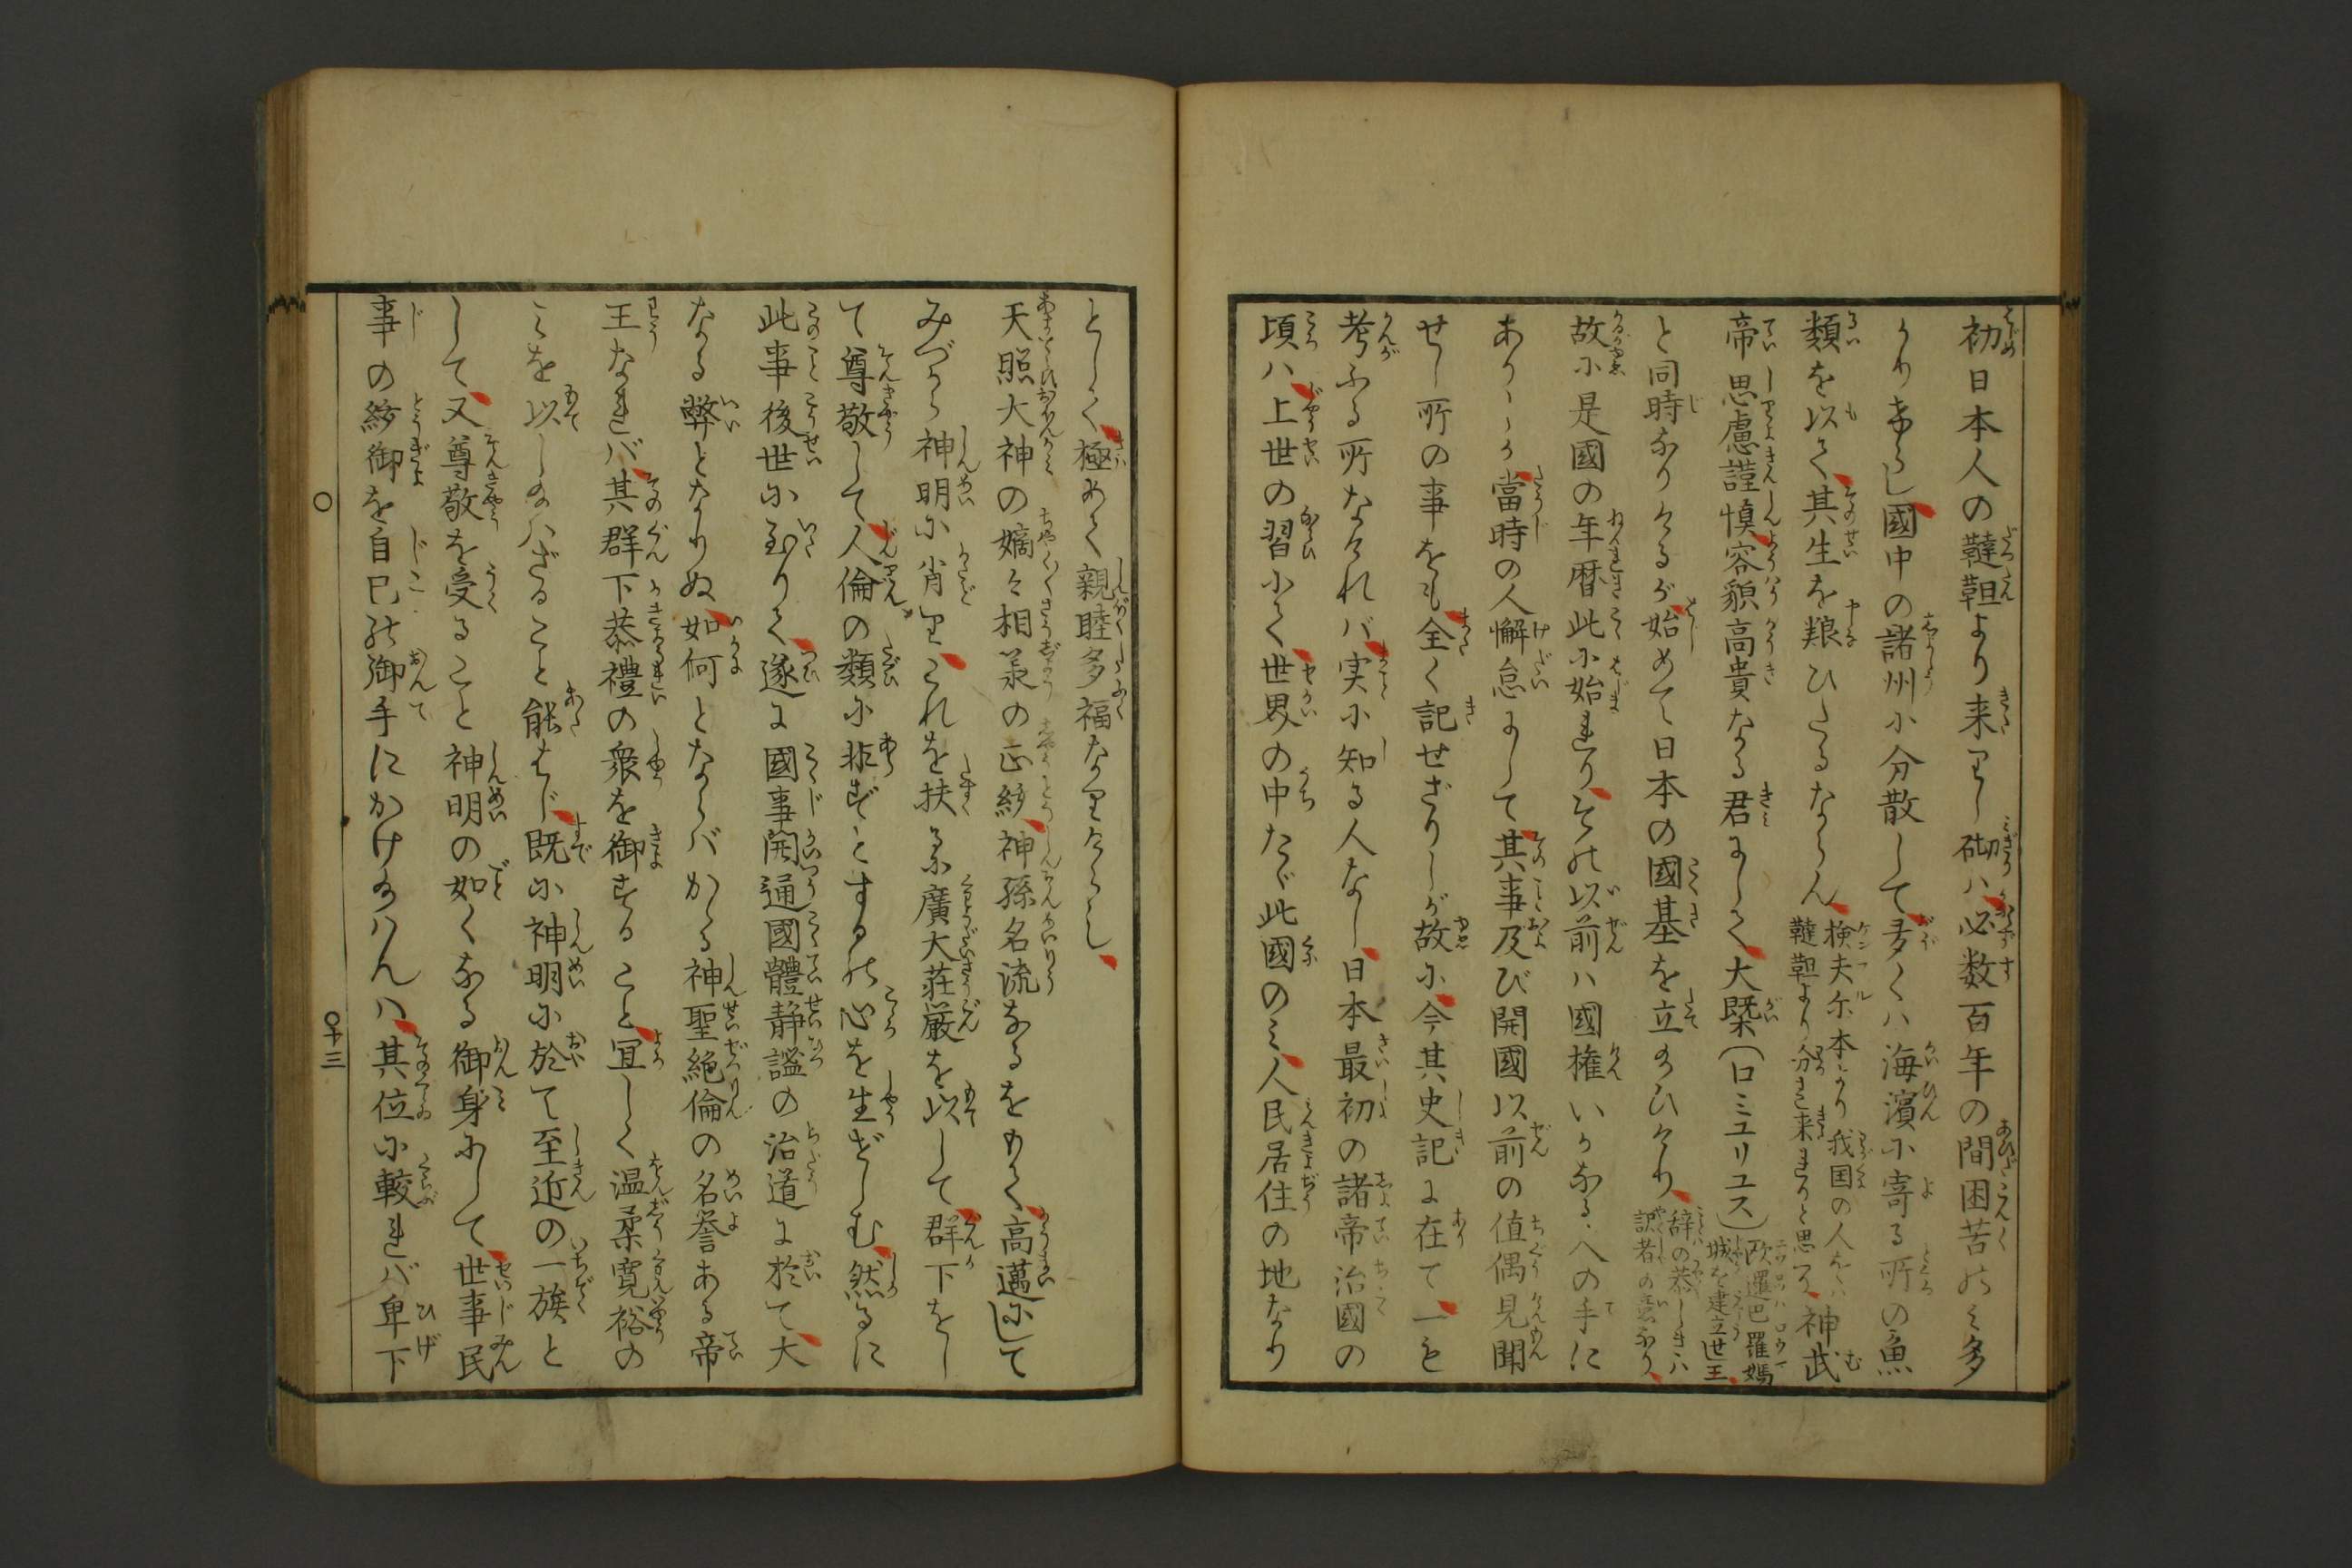 初日本人の韃靼より来りし砌ハ必数百年の間困苦のミ多
かりきらし國中の諸州に分散して多くハ海濱に寄る所の魚
類を以て其生を粮ひたるならん
検夫尓本より我国の人をハ
韃靼より分き来れりと思へり
神武
帝思慮謹慎容貌高貴なる君にして大槩(ロミユリユス)
欧邏巴羅媽
城を建立世王
と同時なりけるが始めて日本の國基を立のひけり
辞の恭しきハ
訳者の意なり
故に是國の年暦此に始れりその以前ハ國権いかなる人の手に
ありしか當時の人懈怠にして其事及び開國以前の値偶見聞
せし所の事をも全く記せざりしが故に今其史記に在て一も
考ふる所なけれバ実に知る人なし日本最初の諸帝治國の
頃ハ上世の習にて世界の中たゞ此國のミ人民居住の地なり
としく極めて親睦多福なりけらし
天照大神の嫡々相羕の正統神孫名流なるをもて高邁にして
みづから神明に肖りこれを扶るに廣大荘厳を以して群下をし
て尊敬して人倫の類に非ずとするの心を生ぜしむ然るに
此事後世に至りて遂に國事開通國體静謐の治道に於て大
なる弊となりぬ如何とならバかゝる神聖絶倫の名誉ある帝
王なれバ其群下恭禮の衆を御すること宜しく温柔寛裕の
こを以し給ハざること能はじ既に神明に於て至近の一族と
して又尊敬を受ること神明の如くなる御身にして世事民
事の統御を自己の御手にかけ給ハんハ其位に較れバ卑下
十三